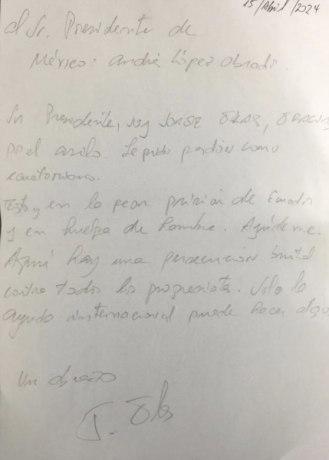 15/Abril/2024
Al Sr. Presidente de
México: André López Obrador.
Sr Presidente, soy JORGE GLAS,
por el asilo. Le pido perdón como
ecuatoriano.
Estoy en la peor prisión de Ecuador
y en huelga de hambre. Ayúdeme.
Aquí hay una persecución brutal
contra todo lo progresista. Sólo la
ayuda internacional puede hacer algo
Un abrazo
J. Glas